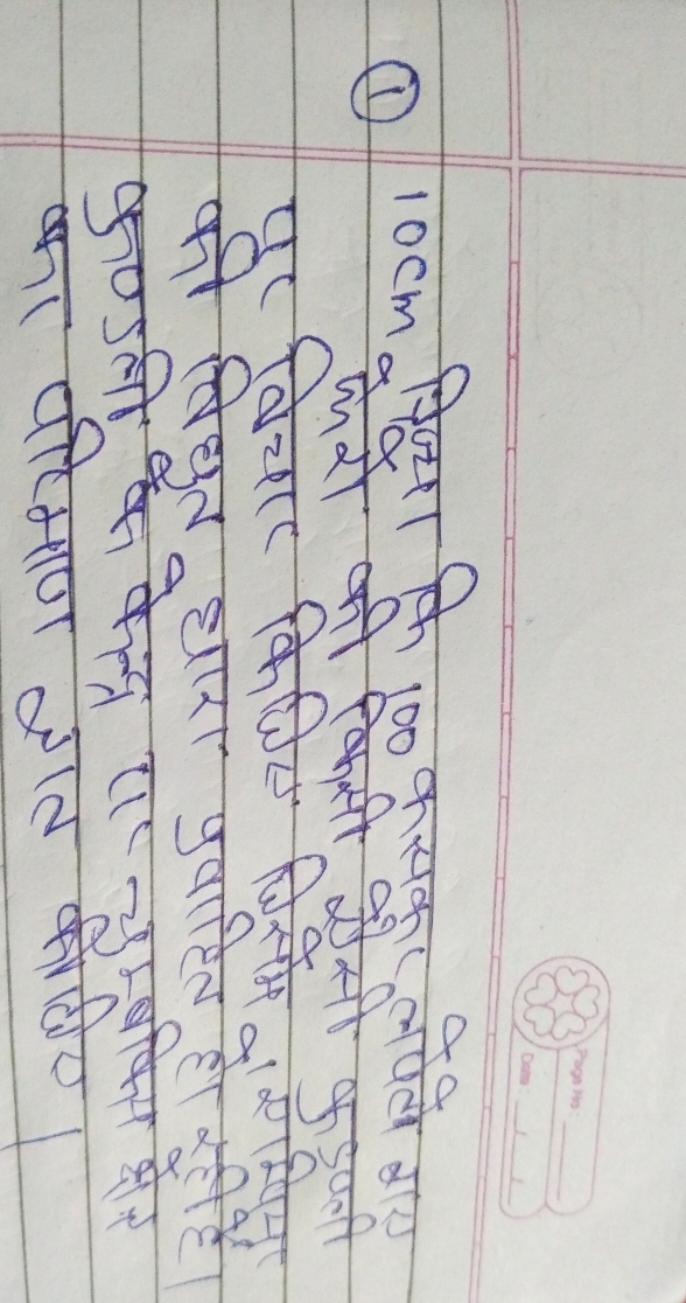 Page No.
Date:
① 10cm त्रिज्या कि 100 कसकर लपेटे गए
फेरो की किसी ऐसी कुडली
पर विचार किजिए जिसमे 1 एम्पियर
की विद्युत धारा प्रवाहित हो रही है।
कुण्डली के केन्द्र पर चुम्बकिय क्षेत्र
का परिमाण ज्ञात कीजिए।